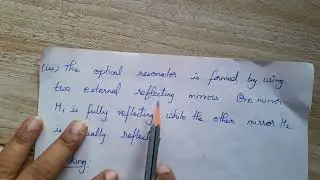 (iii) The optical resonator is formed by using
two external reflecting mirrors. One mirror
M1 is fully reflecting while the other mirror M2
is reflec
king